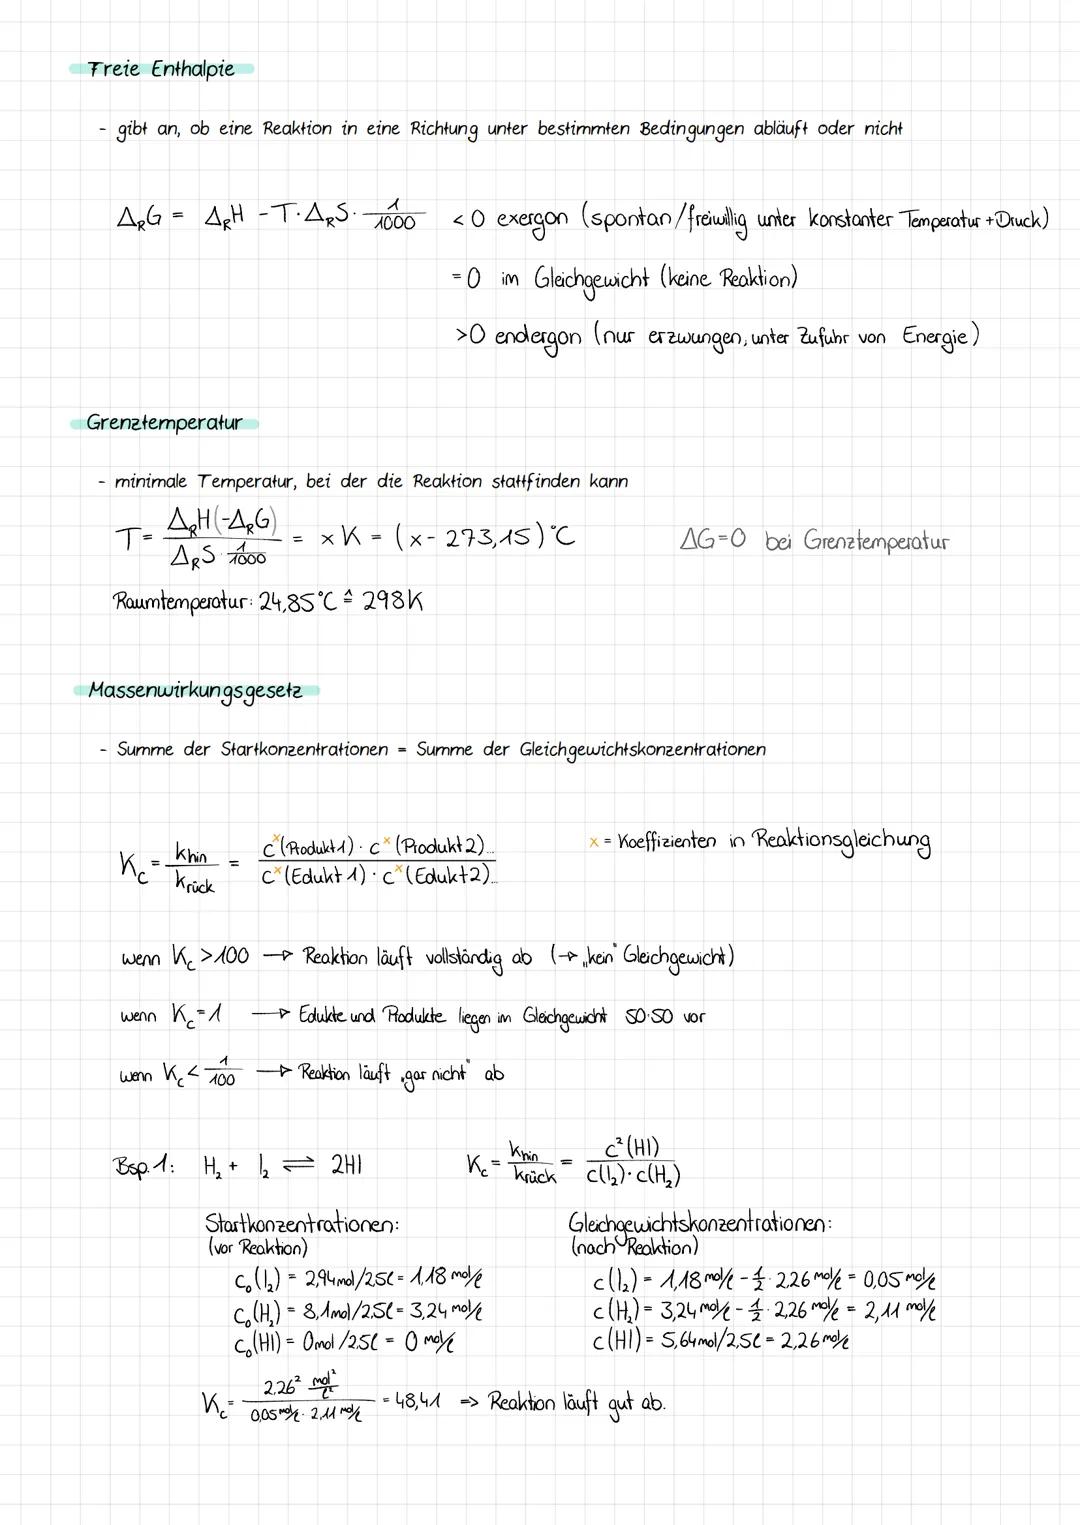 Freie Enthalpie
- gibt an, ob eine Reaktion in eine Richtung unter bestimmten Bedingungen abläuft oder nicht
Δ_R G = Δ_R H - T · Δ_R S · 1/1000 < 0 exergon (spontan/freiwillig unter konstanter Temperatur + Druck)
= 0 im Gleichgewicht (keine Reaktion)
> 0 endergon (nur erzwungen, unter Zufuhr von Energie)
Grenztemperatur
- minimale Temperatur, bei der die Reaktion stattfinden kann
T = Δ_R H (-Δ_R G) / Δ_R S · 1/1000 = x K = (x - 273,15) °C ΔG = 0 bei Grenztemperatur
Raumtemperatur: 24,85°C ≙ 298K
Massenwirkungsgesetz
- Summe der Startkonzentrationen = Summe der Gleichgewichtskonzentrationen
K_c = k_hin / k_rück = c^x (Produkt 1) · c^x (Produkt 2)... / c^x (Edukt 1) · c^x (Edukt 2)... x = Koeffizienten in Reaktionsgleichung
wenn K_c > 100 → Reaktion läuft vollständig ab (→ „kein" Gleichgewicht)
wenn K_c = 1 → Edukte und Produkte liegen im Gleichgewicht 50:50 vor
wenn K_c < 1/100 → Reaktion läuft „gar nicht" ab
Bsp. 1: H₂ + I₂ ⇌ 2HI K_c = k_hin / k_rück = c²(HI) / c(I₂) · c(H₂)
Startkonzentrationen:
(vor Reaktion)
c₀(I₂) = 2,94 mol/2,5ℓ = 1,18 mol/ℓ
c₀(H₂) = 8,1 mol/2,5ℓ = 3,24 mol/ℓ
c₀(HI) = 0 mol/2,5ℓ = 0 mol/ℓ
Gleichgewichtskonzentrationen:
(nach Reaktion)
c(I₂) = 1,18 mol/ℓ - 1/2 · 2,26 mol/ℓ = 0,05 mol/ℓ
c(H₂) = 3,24 mol/ℓ - 1/2 · 2,26 mol/ℓ = 2,11 mol/ℓ
c(HI) = 5,64 mol/2,5ℓ = 2,26 mol/ℓ
K_c = 2,26² mol²/ℓ² / 0,05 mol/ℓ · 2,11 mol/ℓ = 48,41 => Reaktion läuft gut ab.